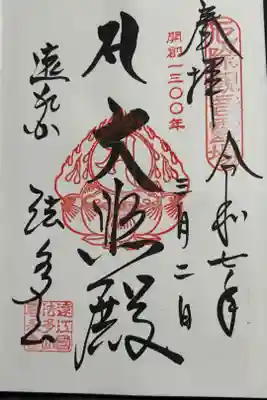 奉拝
令和七年
三月二日
開創一三〇〇年
大悲殿
遠州
法多山